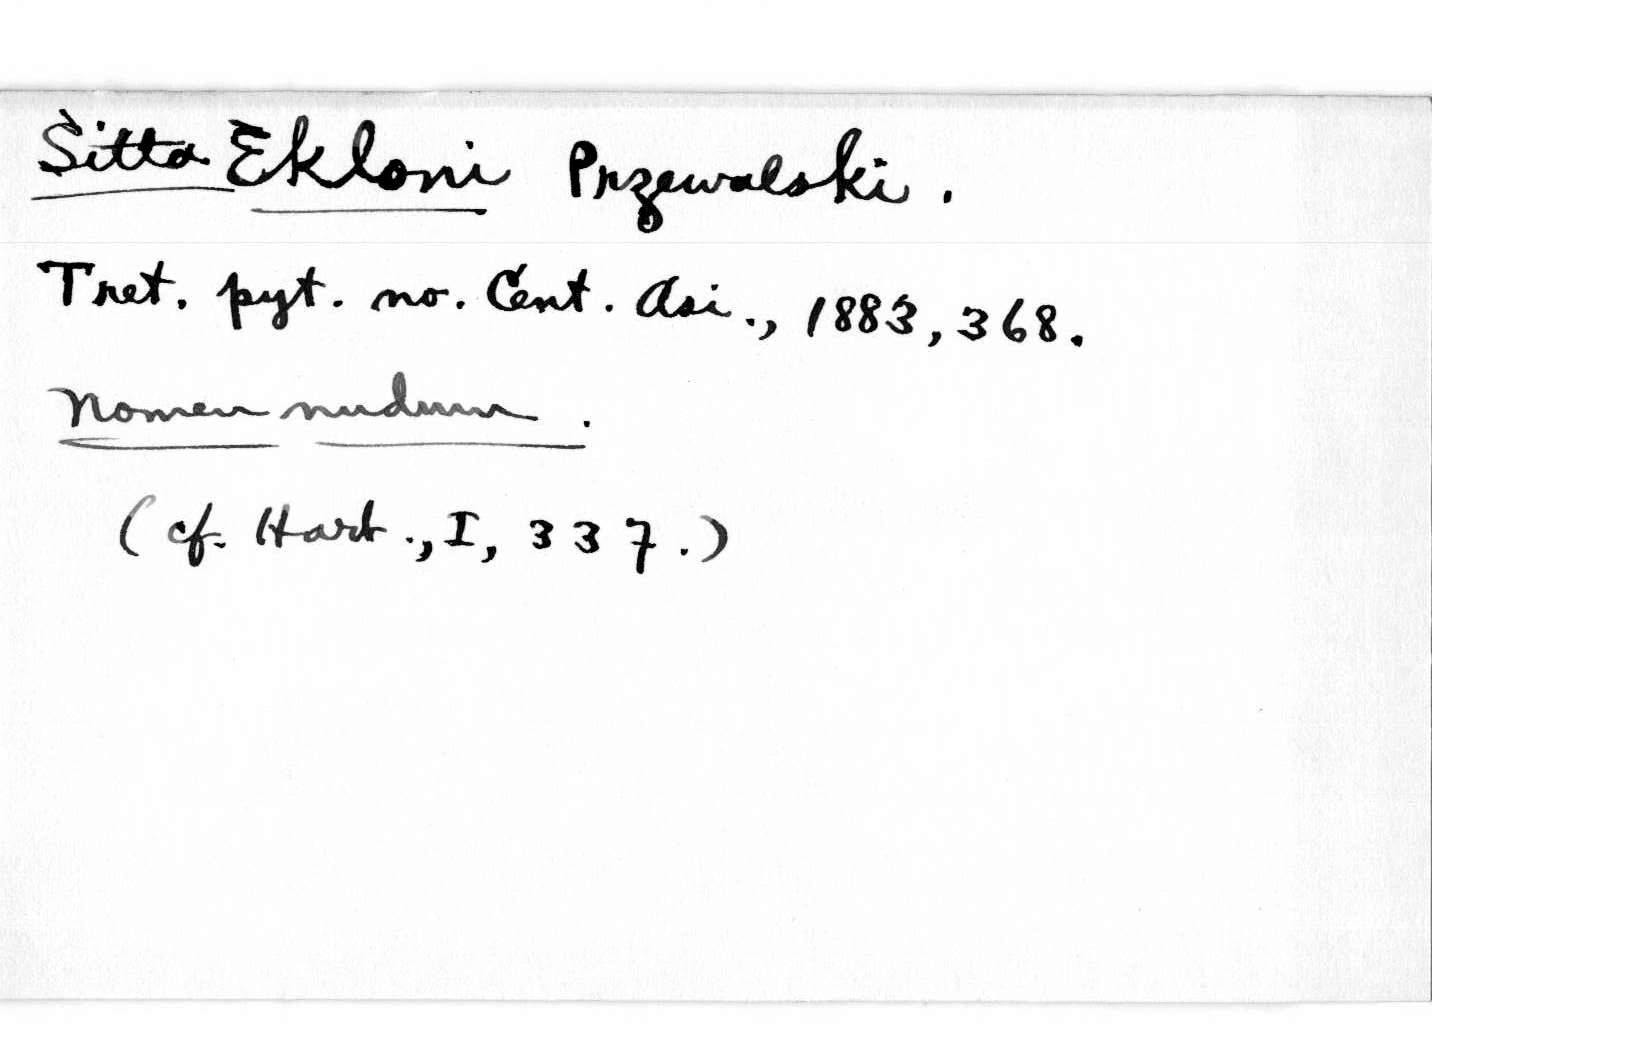 Sitta Ekloni Przewalski.
Tret. pyt. no. Cent. Asi., 1883, 368.
Nomen nudum.
(cf. Hart., I, 337.)